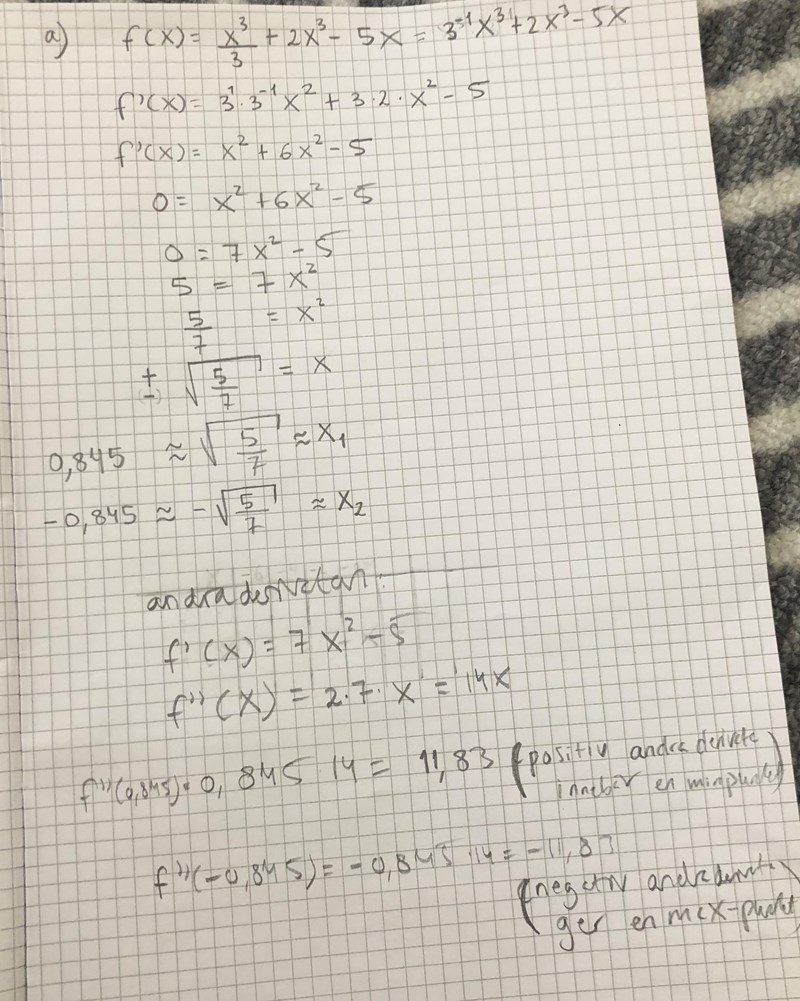 a) f(x) = x³/3 + 2x³ - 5x = 3⁻¹x³ + 2x³ - 5x
f'(x) = 3¹·3⁻¹x² + 3·2·x² - 5
f'(x) = x² + 6x² - 5
0 = x² + 6x² - 5
0 = 7x² - 5
5 = 7x²
5/7 = x²
± √(5/7) = x
(-)
0,845 ≈ √(5/7) ≈ x₁
-0,845 ≈ -√(5/7) ≈ x₂
andraderivatan:
f'(x) = 7x² - 5
f''(x) = 2·7·x = 14x
f''(0,845) = 0,845·14 = 11,83 (positiv andra derivata
innebär en minpunkt)
f''(-0,845) = -0,845·14 = -11,83
(negativ andraderivata
ger en max-punkt